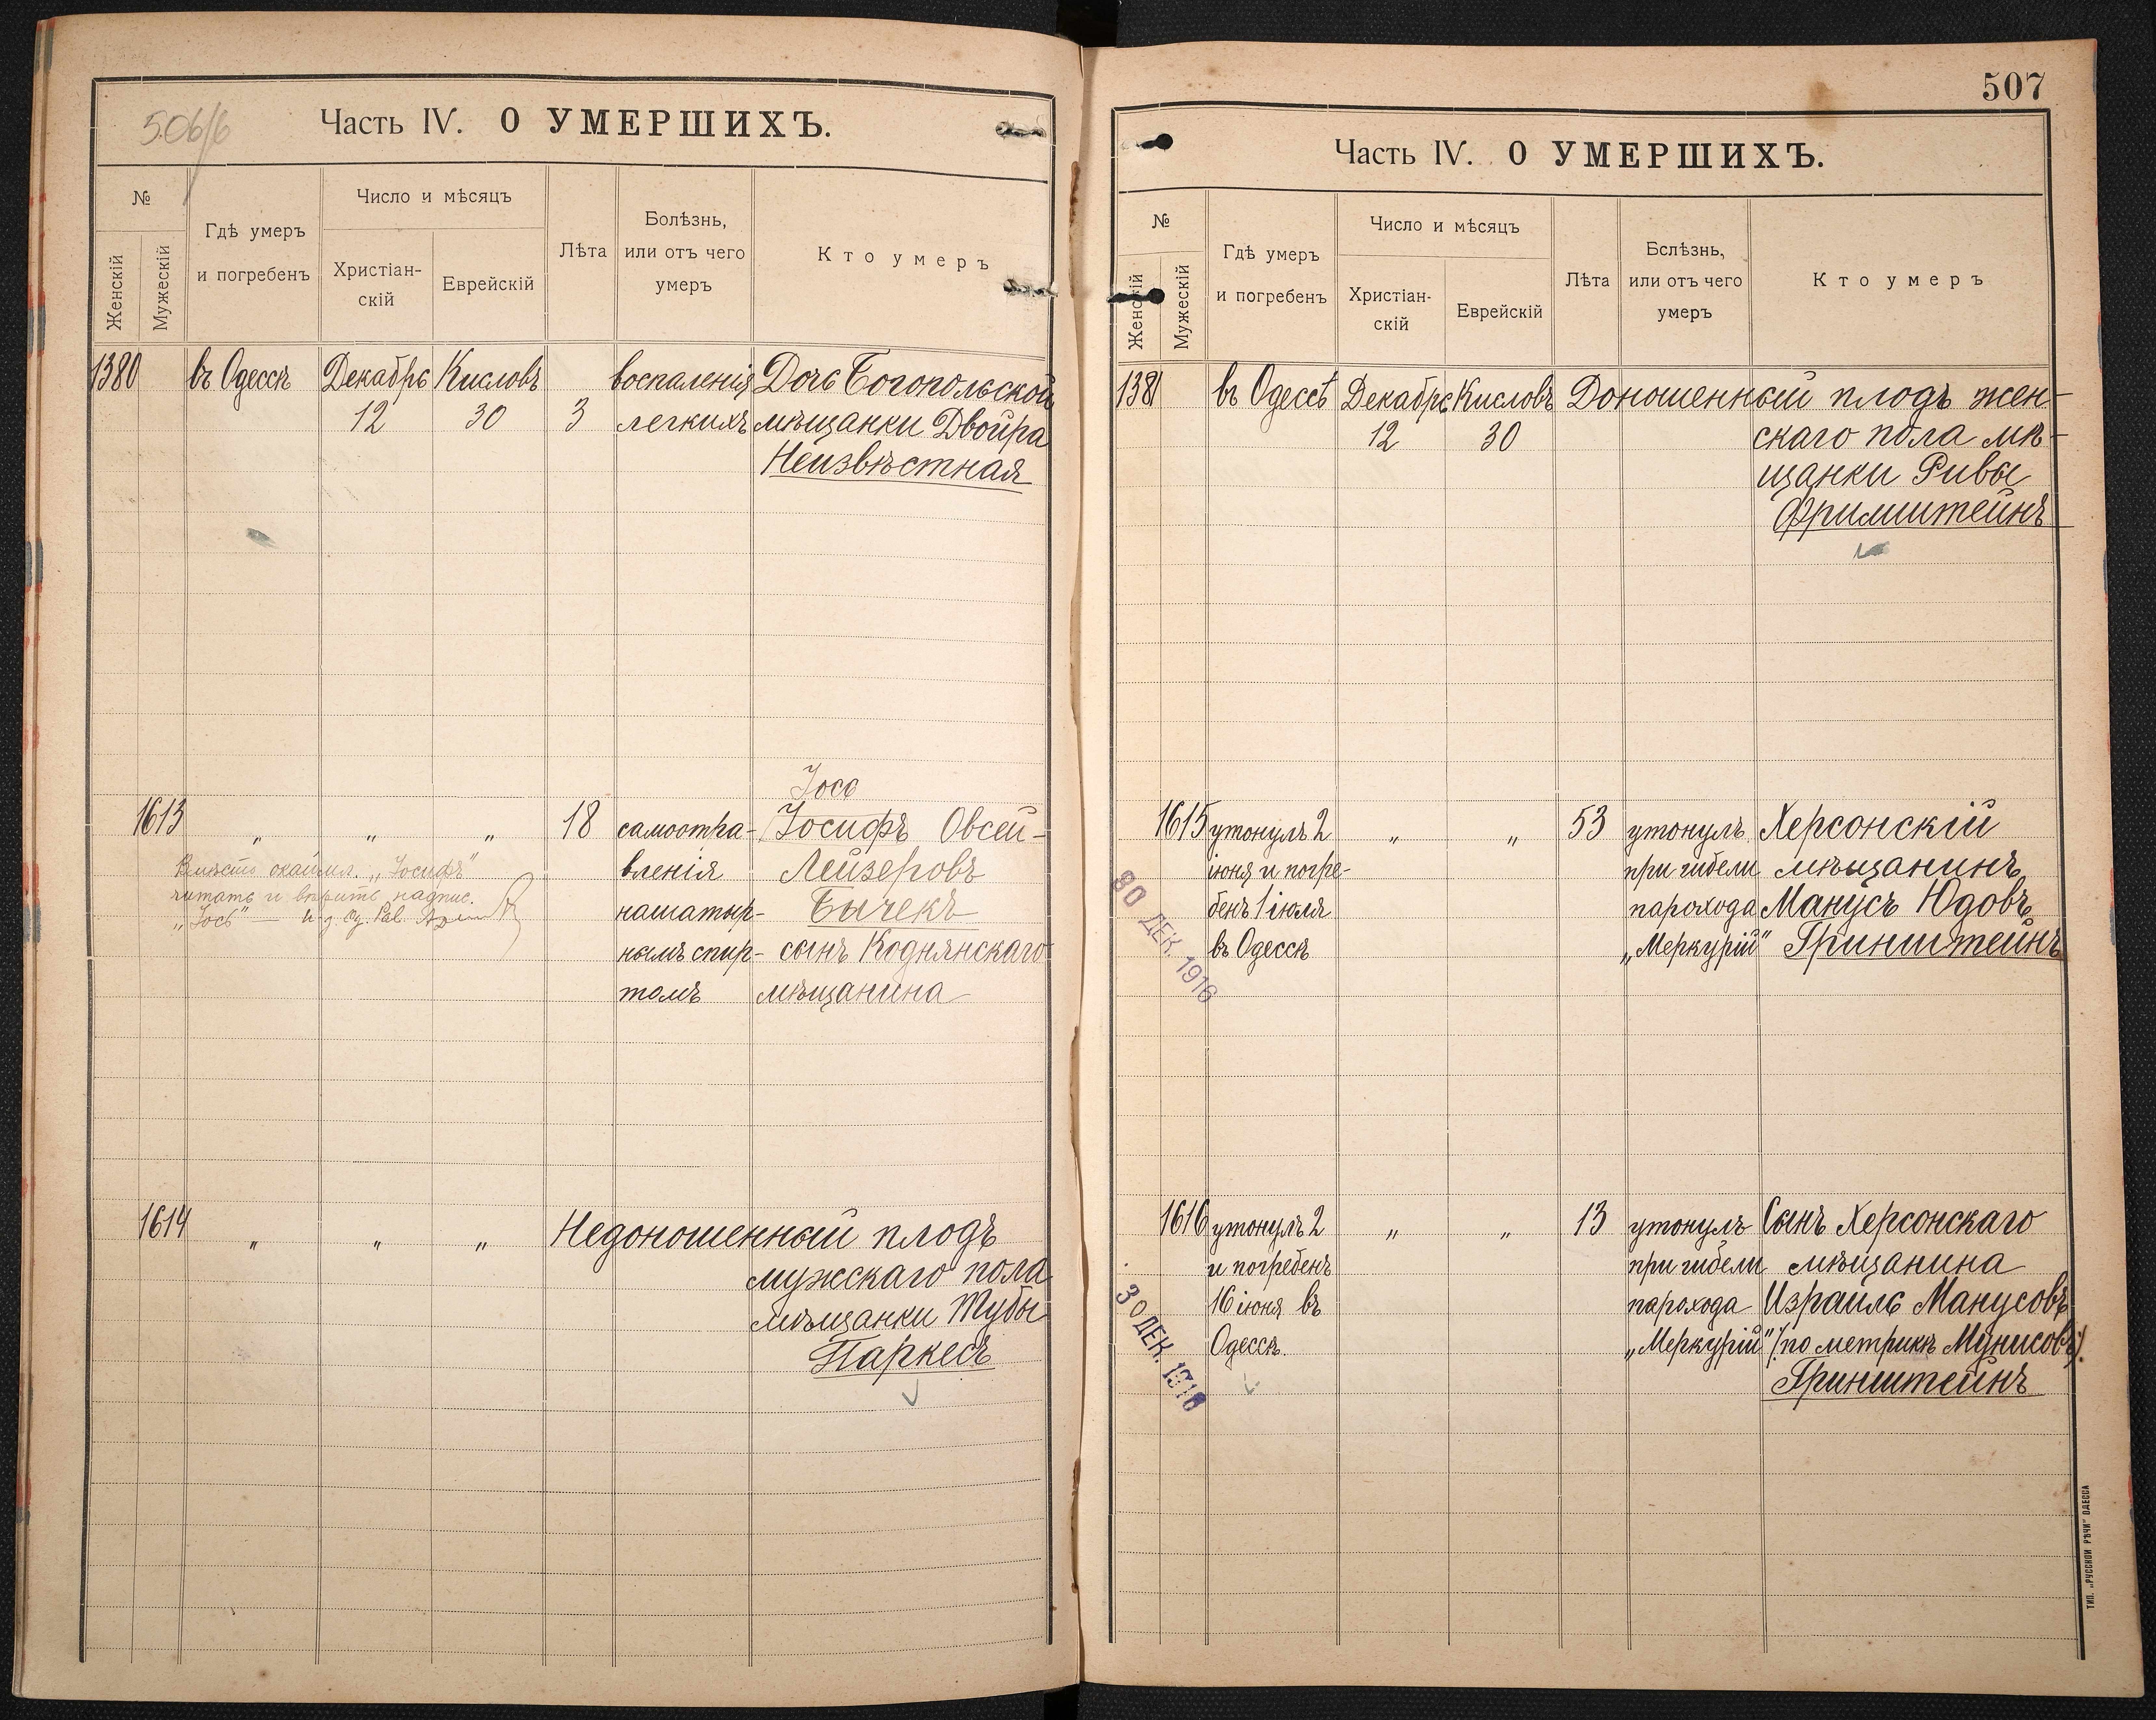 506/б
Часть IV. О УМЕРШИХЪ.
№
Женскій
Мужескій
Гдѣ умеръ
и погребенъ
Число и мѣсяцъ
Христіан-
скій
Еврейскій
Лѣта
Болѣзнь,
или отъ чего
умеръ
Кто умеръ
1380 въ Одессѣ Декабрь Кисловъ воспаленія Дочь Богопольской
12 30 3 легкихъ мѣщанки Двойра
Неизвѣстная
Іось
1613 „ „ „ 18 самоотра- Іосифъ Овсей-
вленія Лейзеровъ
нашатыр- Бычекъ
нымъ спир- сынъ Коднянскаго
томъ мѣщанина
Вмѣсто окаймл. „Іосифъ"
читать и вѣрить надпис.
„Іось" — И. д. Од. Рав.
1614 „ „ „ Недоношенный плодъ
мужскаго пола
мѣщанки Тубы
Паркесъ
507
Часть IV. О УМЕРШИХЪ.
№
Женскій
Мужескій
Гдѣ умеръ
и погребенъ
Число и мѣсяцъ
Христіан-
скій
Еврейскій
Лѣта
Бслѣзнь,
или отъ чего
умеръ
Кто умеръ
1381 въ Одессѣ Декабрь Кисловъ Доношенный плодъ жен-
12 30 скаго пола мѣ-
щанки Ривы
Фримштейнъ
1615 утонулъ 2 „ „ 53 утонулъ Херсонскій
іюня и погре- при гибели мѣщанинъ
бенъ 1 іюля парохода Манусъ Юдовъ
въ Одессѣ „Меркурій" Гринштейнъ
30 ДЕК. 1916
1616 утонулъ 2 „ „ 13 утонулъ Сынъ Херсонскаго
и погребенъ при гибели мѣщанина
16 іюня въ парохода Израиль Манусовъ
Одессѣ. „Меркурій" (по метрикѣ Мунисовъ).
Гринштейнъ
30 ДЕК. 1916
ТИП. „РУССКОЙ РѢЧИ" ОДЕССА